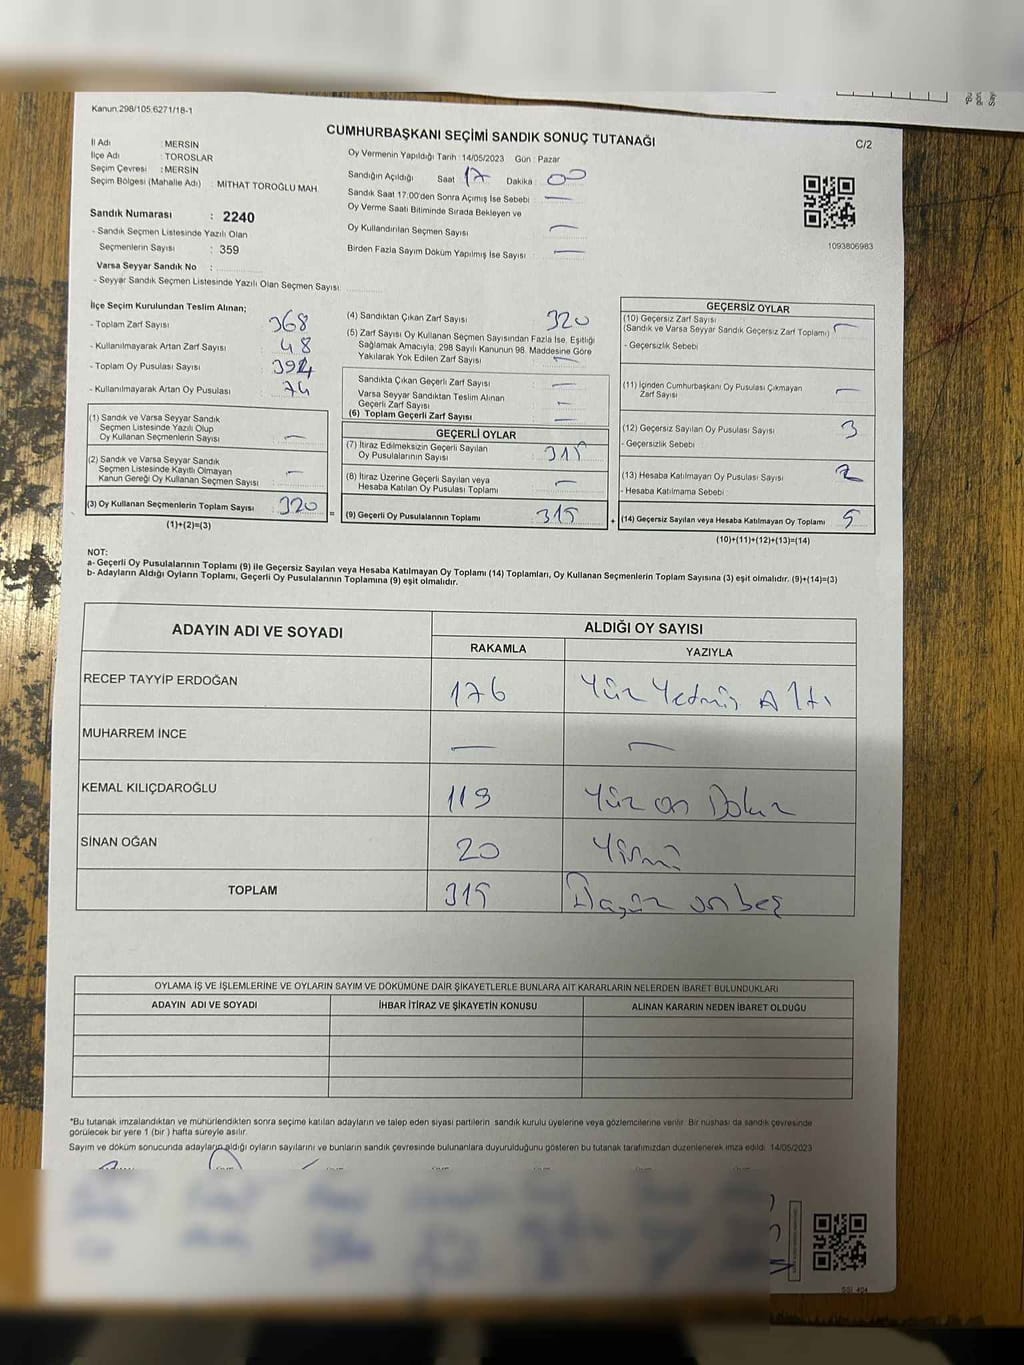 Kanun 298/105 6271/18-1
CUMHURBAŞKANI SEÇİMİ SANDIK SONUÇ TUTANAĞI
C/2
İl Adı : MERSİN
İlçe Adı : TOROSLAR
Seçim Çevresi : MERSİN
Seçim Bölgesi (Mahalle Adı) : MİTHAT TOROĞLU MAH.
Sandık Numarası : 2240
- Sandık Seçmen Listesinde Yazılı Olan
Seçmenlerin Sayısı : 359
Varsa Seyyar Sandık No :
- Seyyar Sandık Seçmen Listesinde Yazılı Olan Seçmen Sayısı:
Oy Vermenin Yapıldığı Tarih : 14/05/2023 Gün : Pazar
Sandığın Açıldığı Saat 17 Dakika : 00
Sandık Saat 17.00'den Sonra Açımış İse Sebebi : —
Oy Verme Saati Bitiminde Sırada Bekleyen ve
Oy Kullandırılan Seçmen Sayısı —
Birden Fazla Sayım Döküm Yapılmış İse Sayısı —
1093806983
İlçe Seçim Kurulundan Teslim Alınan;
- Toplam Zarf Sayısı 368
- Kullanılmayarak Artan Zarf Sayısı : 48
- Toplam Oy Pusulası Sayısı : 394
- Kullanılmayarak Artan Oy Pusulası : 74
(1) Sandık ve Varsa Seyyar Sandık
Seçmen Listesinde Yazılı Olup
Oy Kullanan Seçmenlerin Sayısı —
(2) Sandık ve Varsa Seyyar Sandık
Seçmen Listesinde Kayıtlı Olmayan
Kanun Gereği Oy Kullanan Seçmen Sayısı —
(3) Oy Kullanan Seçmenlerin Toplam Sayısı 320
(1)+(2)=(3)
(4) Sandıktan Çıkan Zarf Sayısı 320
(5) Zarf Sayısı Oy Kullanan Seçmen Sayısından Fazla İse, Eşitliği
Sağlamak Amacıyla, 298 Sayılı Kanunun 98. Maddesine Göre
Yakılarak Yok Edilen Zarf Sayısı —
Sandıkta Çıkan Geçerli Zarf Sayısı —
Varsa Seyyar Sandıktan Teslim Alınan
Geçerli Zarf Sayısı —
(6) Toplam Geçerli Zarf Sayısı —
GEÇERLİ OYLAR
(7) İtiraz Edilmeksizin Geçerli Sayılan
Oy Pusulalarının Sayısı 315
(8) İtiraz Üzerine Geçerli Sayılan veya
Hesaba Katılan Oy Pusulası Toplamı —
= (9) Geçerli Oy Pusulalarının Toplamı 315 +
GEÇERSİZ OYLAR
(10) Geçersiz Zarf Sayısı
(Sandık ve Varsa Seyyar Sandık Geçersiz Zarf Toplamı) —
- Geçersizlik Sebebi
(11) İçinden Cumhurbaşkanı Oy Pusulası Çıkmayan
Zarf Sayısı —
(12) Geçersiz Sayılan Oy Pusulası Sayısı 3
- Geçersizlik Sebebi
(13) Hesaba Katılmayan Oy Pusulası Sayısı 2
- Hesaba Katılmama Sebebi
(14) Geçersiz Sayılan veya Hesaba Katılmayan Oy Toplamı 5
(10)+(11)+(12)+(13)=(14)
NOT:
a- Geçerli Oy Pusulalarının Toplamı (9) ile Geçersiz Sayılan veya Hesaba Katılmayan Oy Toplamı (14) Toplamları, Oy Kullanan Seçmenlerin Toplam Sayısına (3) eşit olmalıdır. (9)+(14)=(3)
b- Adayların Aldığı Oyların Toplamı, Geçerli Oy Pusulalarının Toplamına (9) eşit olmalıdır.
ADAYIN ADI VE SOYADI
ALDIĞI OY SAYISI
RAKAMLA
YAZIYLA
RECEP TAYYİP ERDOĞAN 176 Yüz Yetmiş Altı
MUHARREM İNCE — —
KEMAL KILIÇDAROĞLU 119 Yüz on Dokuz
SİNAN OĞAN 20 Yirmi
TOPLAM 315 Üçyüz onbeş
OYLAMA İŞ VE İŞLEMLERİNE VE OYLARIN SAYIM VE DÖKÜMÜNE DAİR ŞİKAYETLERLE BUNLARA AİT KARARLARIN NELERDEN İBARET BULUNDUKLARI
ADAYIN ADI VE SOYADI
İHBAR İTİRAZ VE ŞİKAYETİN KONUSU
ALINAN KARARIN NEDEN İBARET OLDUĞU
*Bu tutanak imzalandıktan ve mühürlendikten sonra seçime katılan adayların ve talep eden siyasi partilerin sandık kurulu üyelerine veya gözlemcilerine verilir. Bir nüshası da sandık çevresinde
görülecek bir yere 1 (bir ) hafta süreyle asılır.
Sayım ve döküm sonucunda adayların aldığı oyların sayılarını ve bunların sandık çevresinde bulunanlara duyurulduğunu gösteren bu tutanak tarafımızdan düzenlenerek imza edildi. 14/05/2023